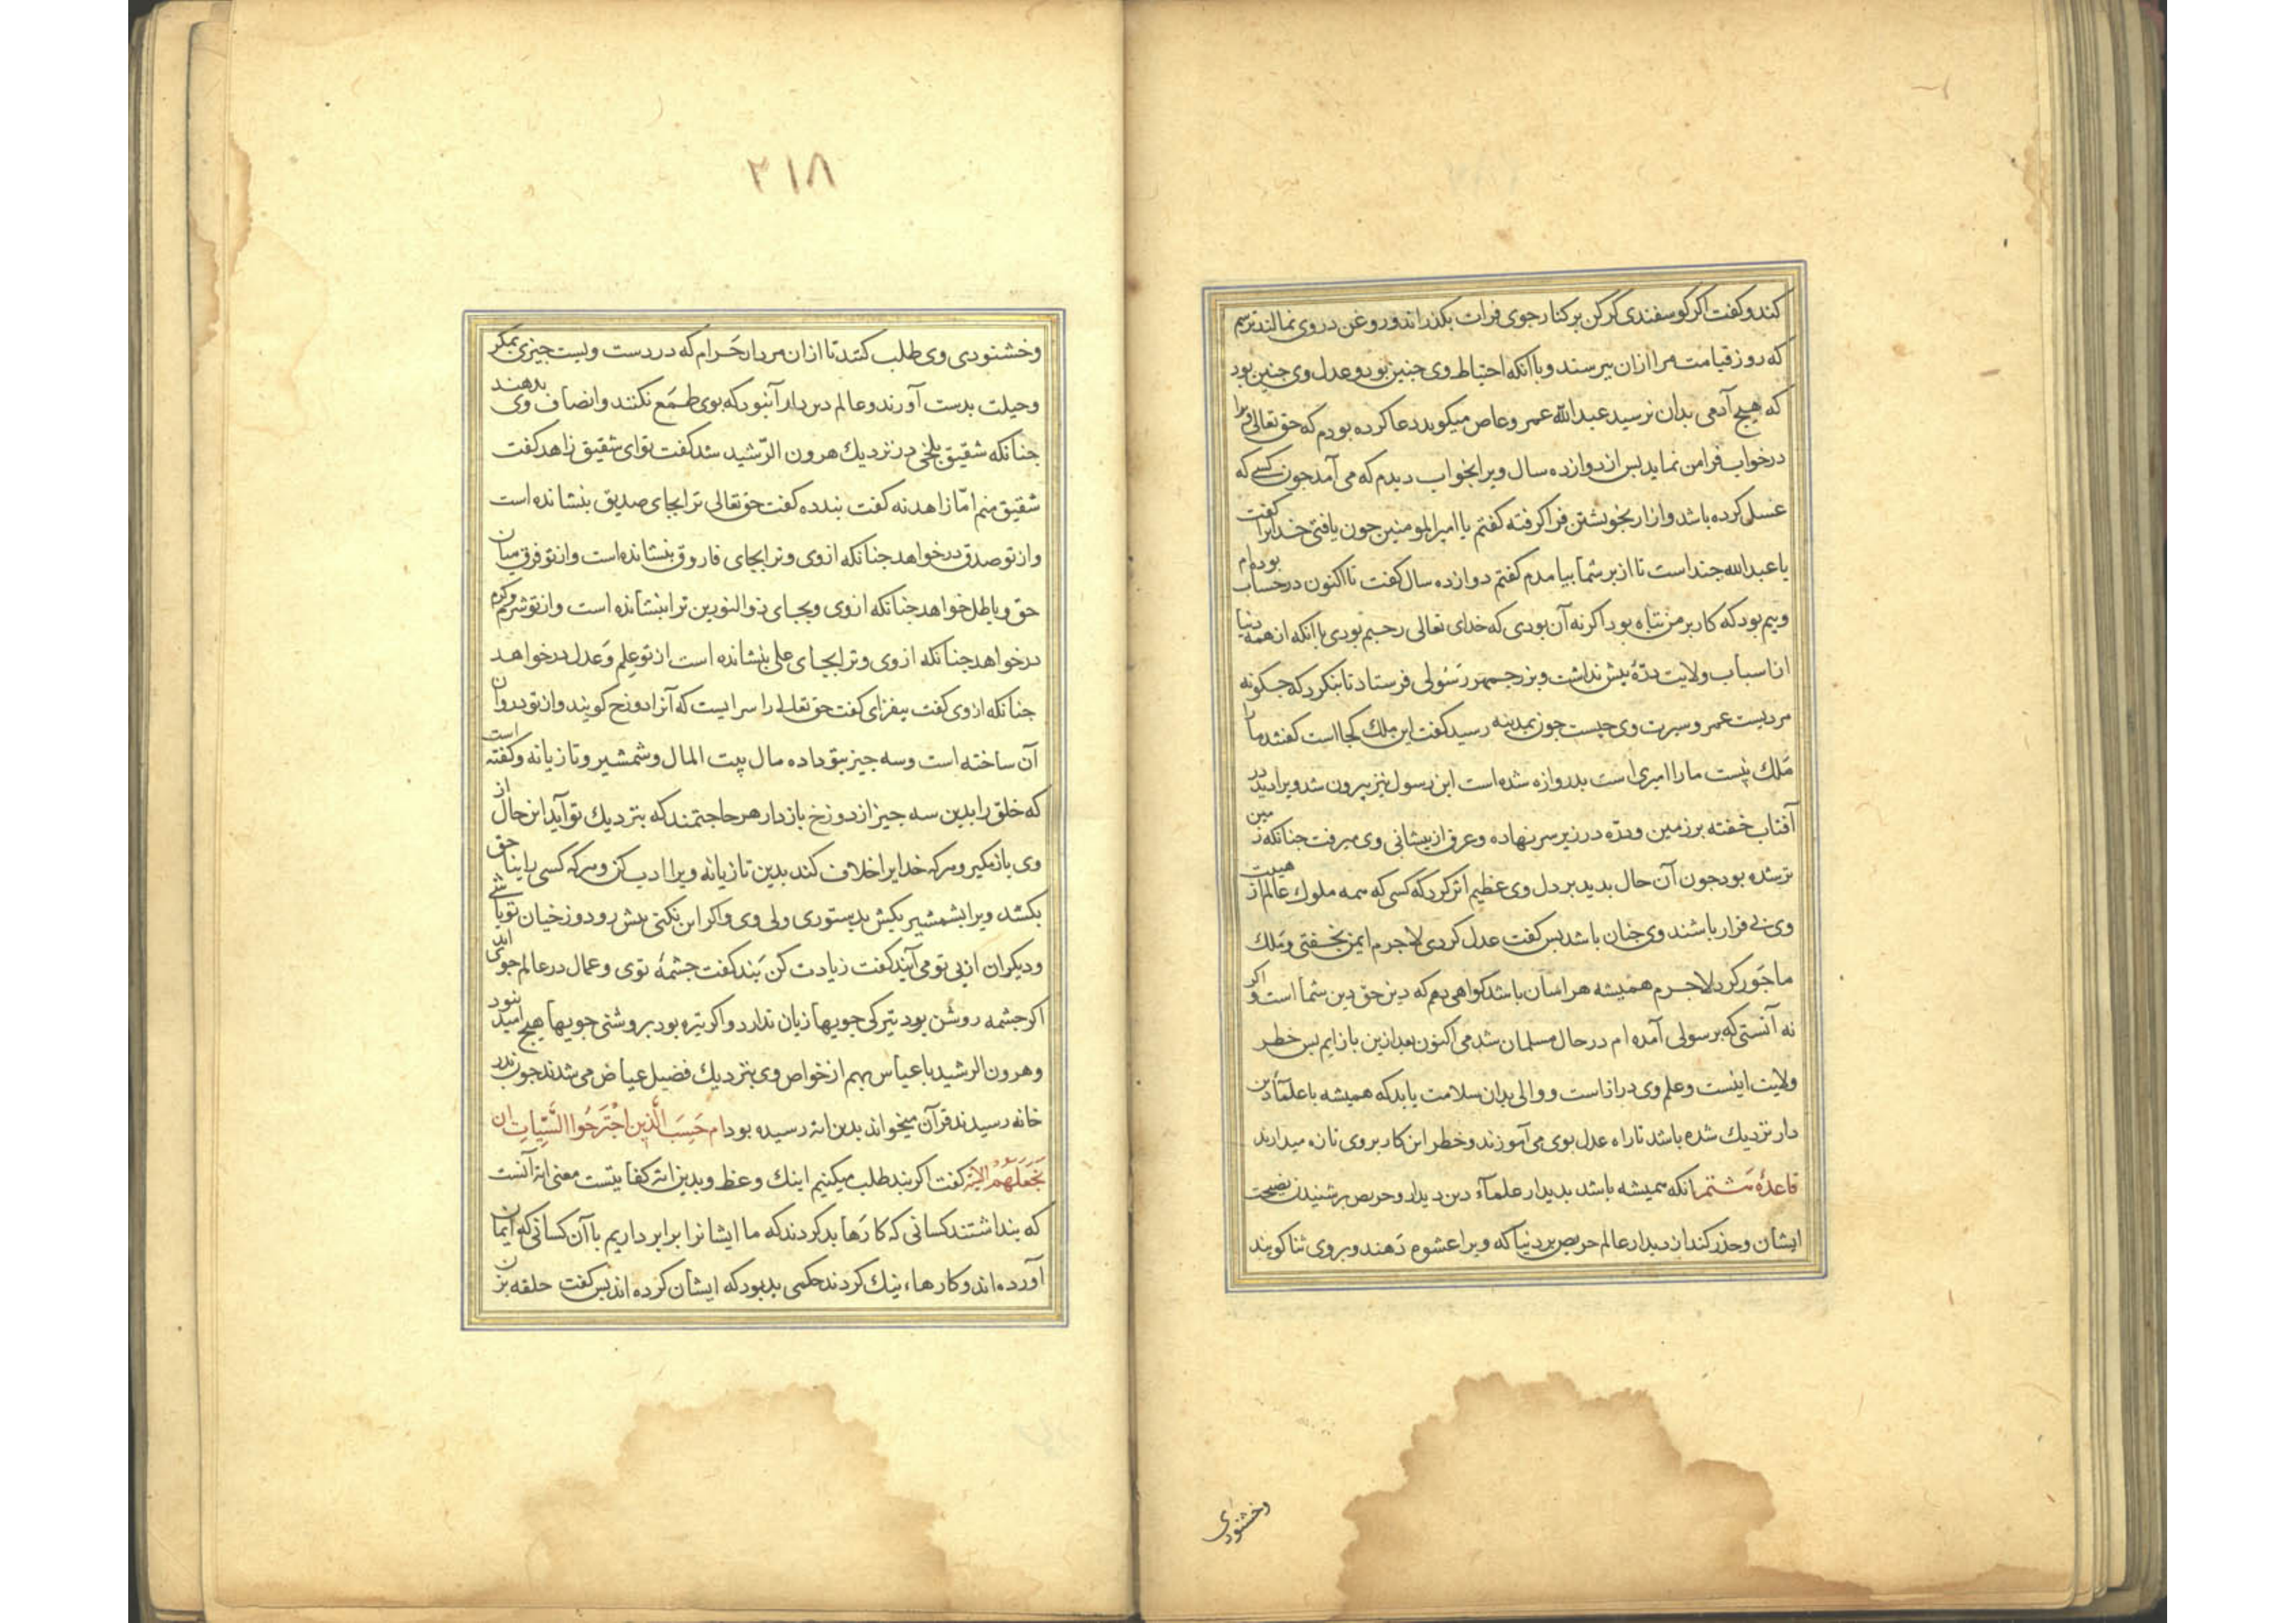 کند و کفت اکر کوسفندی کرکن بر کنار جوی فرات بکذرانند و روغن در وی نمالند ترسم
که روز قیامت مرا ازان بپرسند و با آنکه احتیاط وی جنین بود و عدل وی جنین بود
که هیچ آدمی بدان نرسید عبدالله عمرو عاص میکوید دعا کرده بودم که حق تعالی ویرا
در خواب فرا من نماید بس از دوازده سال ویرا بخواب دیدم که می آمد جون کسی که
غسل کرده باشد و ازار بخویشتن فرا کرفته کفتم یا امیرالمومنین جون یافتی خدایرا کفت
یا عبدالله جند است تا از بر شما بیامدم کفتم دوازده سال کفت تا اکنون در حساب بوده‌ام
و بیم بود که کار بر من تباه بود اکر نه آن بودی که خدای تعالی رحیم بودی با آنکه از همه دنیا
از اسباب ولایت درّهٔ بیش نداشت و بزرجمهر رسولی فرستاد تا بنکرد که جکونه
مردیست عمر و سیرت وی جیست جون بمدینه رسید کفت این ملک کجا است کفتند ما را
مَلک نیست ما را امیری است بدروازه شده است این رسول نیز بیرون شد ویرا دید در
آفتاب خفته بر زمین و درّه در زیر سر نهاده و عرق از بیشانی وی میرفت جنانکه زمین
تر شده بود جون آن حال بدید بر دل وی عظیم اثر کرد که کسی که همه ملوک عالم از هیبت
وی بی قرار باشند وی جنان باشد بس کفت عدل کردی لاجرم ایمن بخفتی و مَلک
ما جَور کرد لاجرم همیشه هراسان باشد کواهی دهم که دین حق دین شما است و اکر
نه آنستی که برسولی آمده ام در حال مسلمان شدمی اکنون بعد ازین باز ایم بس خطر
ولایت اینست و علم وی دراز است و والی بدان سلامت یابد که همیشه با علمآء دین
دار نزدیک شده باشد تا راه عدل بوی می آموزند و خطر این کار بر وی تازه میدارند
قاعدهٔ ششتم انکه همیشه باشد بدیدار علمآء دین دیدار و حریص بر شنیدن نصیحت
ایشان و حذر کند از دیدار عالم حریص بر دنیا که ویرا عشوه دَهند و بر وی ثنا کویند
وخشنودی
۲۱۸
و خشنودی وی طلب کنند تا ازان مردار حَرام که در دست ویست جیزی بمکر
و حیلت بدست آورند و عالم دین دار آن بود که بوی طَمَع نکند و انصاف وی بدهند
جنانکه شقیق بلخی در نزدیک هرون الرّشید شد کفت توای شقیق زاهد کفت
شقیق منم امّا زاهد نه کفت بند ده کفت حق تعالی ترا بجای صدیق بنشانده است
و از تو صدق درخواهد جنانکه از وی و ترا بجای فاروق بنشانده است و از تو فرق میان
حق و باطل خواهد جنانکه از وی و بجای ذوالنورین ترا بنشانده است و از تو شرم و کرم
درخواهد جنانکه از وی و ترا بجای علی بنشانده است از تو علم و عدل درخواهد
جنانکه از وی کفت بیفزای کفت حق تعالی را سرایست که آنرا دوزخ کویند و از تو دروان
آن ساخته است و سه جیز بتو داده مال بیت المال و شمشیر و تازیانه و کفته است
که خلق را بدین سه جیز از دوزخ باز دار هر حاجتمند که بنزدیک تو آید این حال از
وی باز مکیر و هرکه خدایرا خلاف کند بدین تازیانه ویرا ادب کن و هرکه کسی را بناحق
بکشد ویرا بشمشیر بکش بدستوری ولی وی و اکر این نکنی بیش رو دوزخیان تو باشی
و دیکران از بی تو می آیند کفت زیادت کن بَند کفت جشمهٔ توی و عمال در عالم جوی اند
اکر جشمه روشن بود تیرکی جویها زیان ندارد و اکر تیره بود بروشنی جویها هیچ امید نبود
و هرون الرشید با عباس بهم از خواص وی بنزدیک فضیل عیاض می شدند جون بدر
خانه رسیدند قرآن میخواند بدین ایة رسیده بود ام حَسِبَ الَّذین اجْتَرَحُوا السَّیّئات ان
نَجْعَلَهُمْ الایة کفت اکر بند طلب میکنیم اینک وعظ و بدین ایة کفایتست معنی ایة آنست
که بنداشتند کسانی که کارها بد کردند که ما ایشانرا برابر داریم با آن کسانی که ایمان
آورده اند و کارهاء نیک کردند حکمی بد بود که ایشان کرده اند بس کفت حلقه بزن